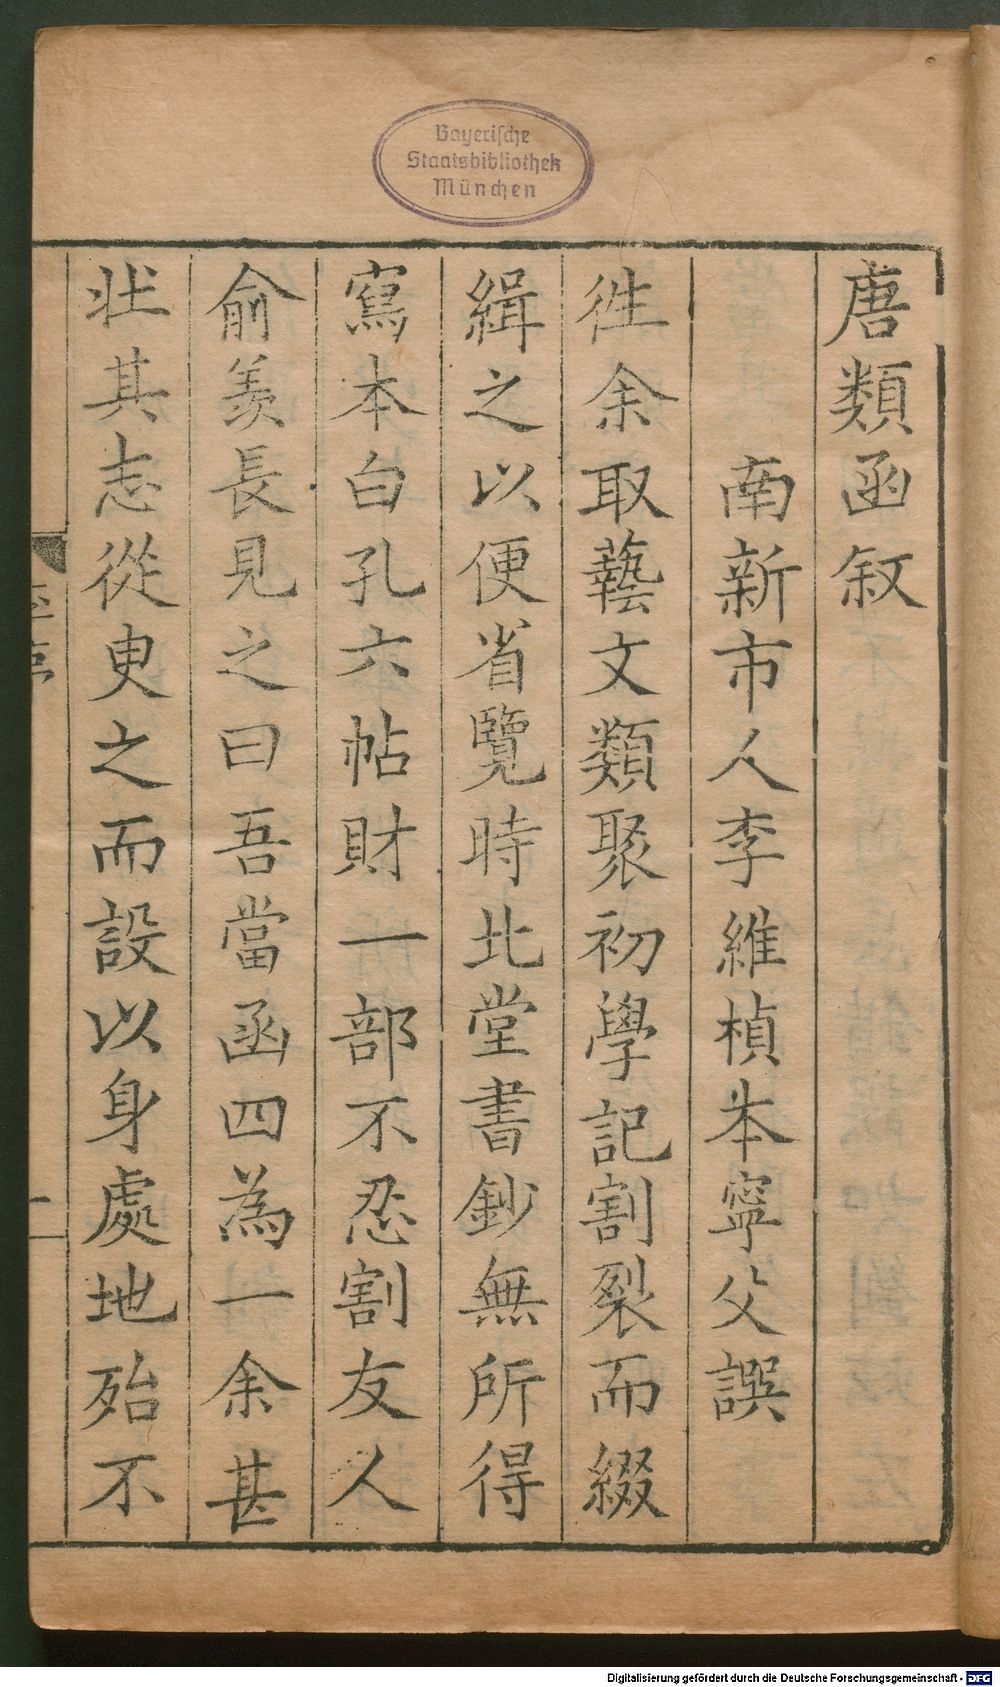 Bayerische
Staatsbibliothek
München
唐類函叙
南新市人李維楨本寧父譔
徃余取藝文類聚初學記割裂而綴
緝之以便省覽時北堂書鈔無所得
寫本白孔六帖財一部不忍割友人
俞羨長見之曰吾當函四為一余甚
壯其志從臾之而設以身處地殆不
一
Digitalisierung gefördert durch die Deutsche Forschungsgemeinschaft - DFG